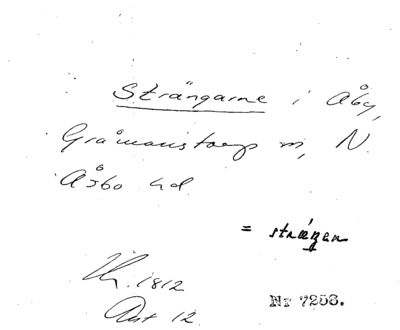 Strängarne i Åby,
Gråmanstorp m, N.
Åsbo hd
= strængen
1812
Akt 12
Nr 7203.